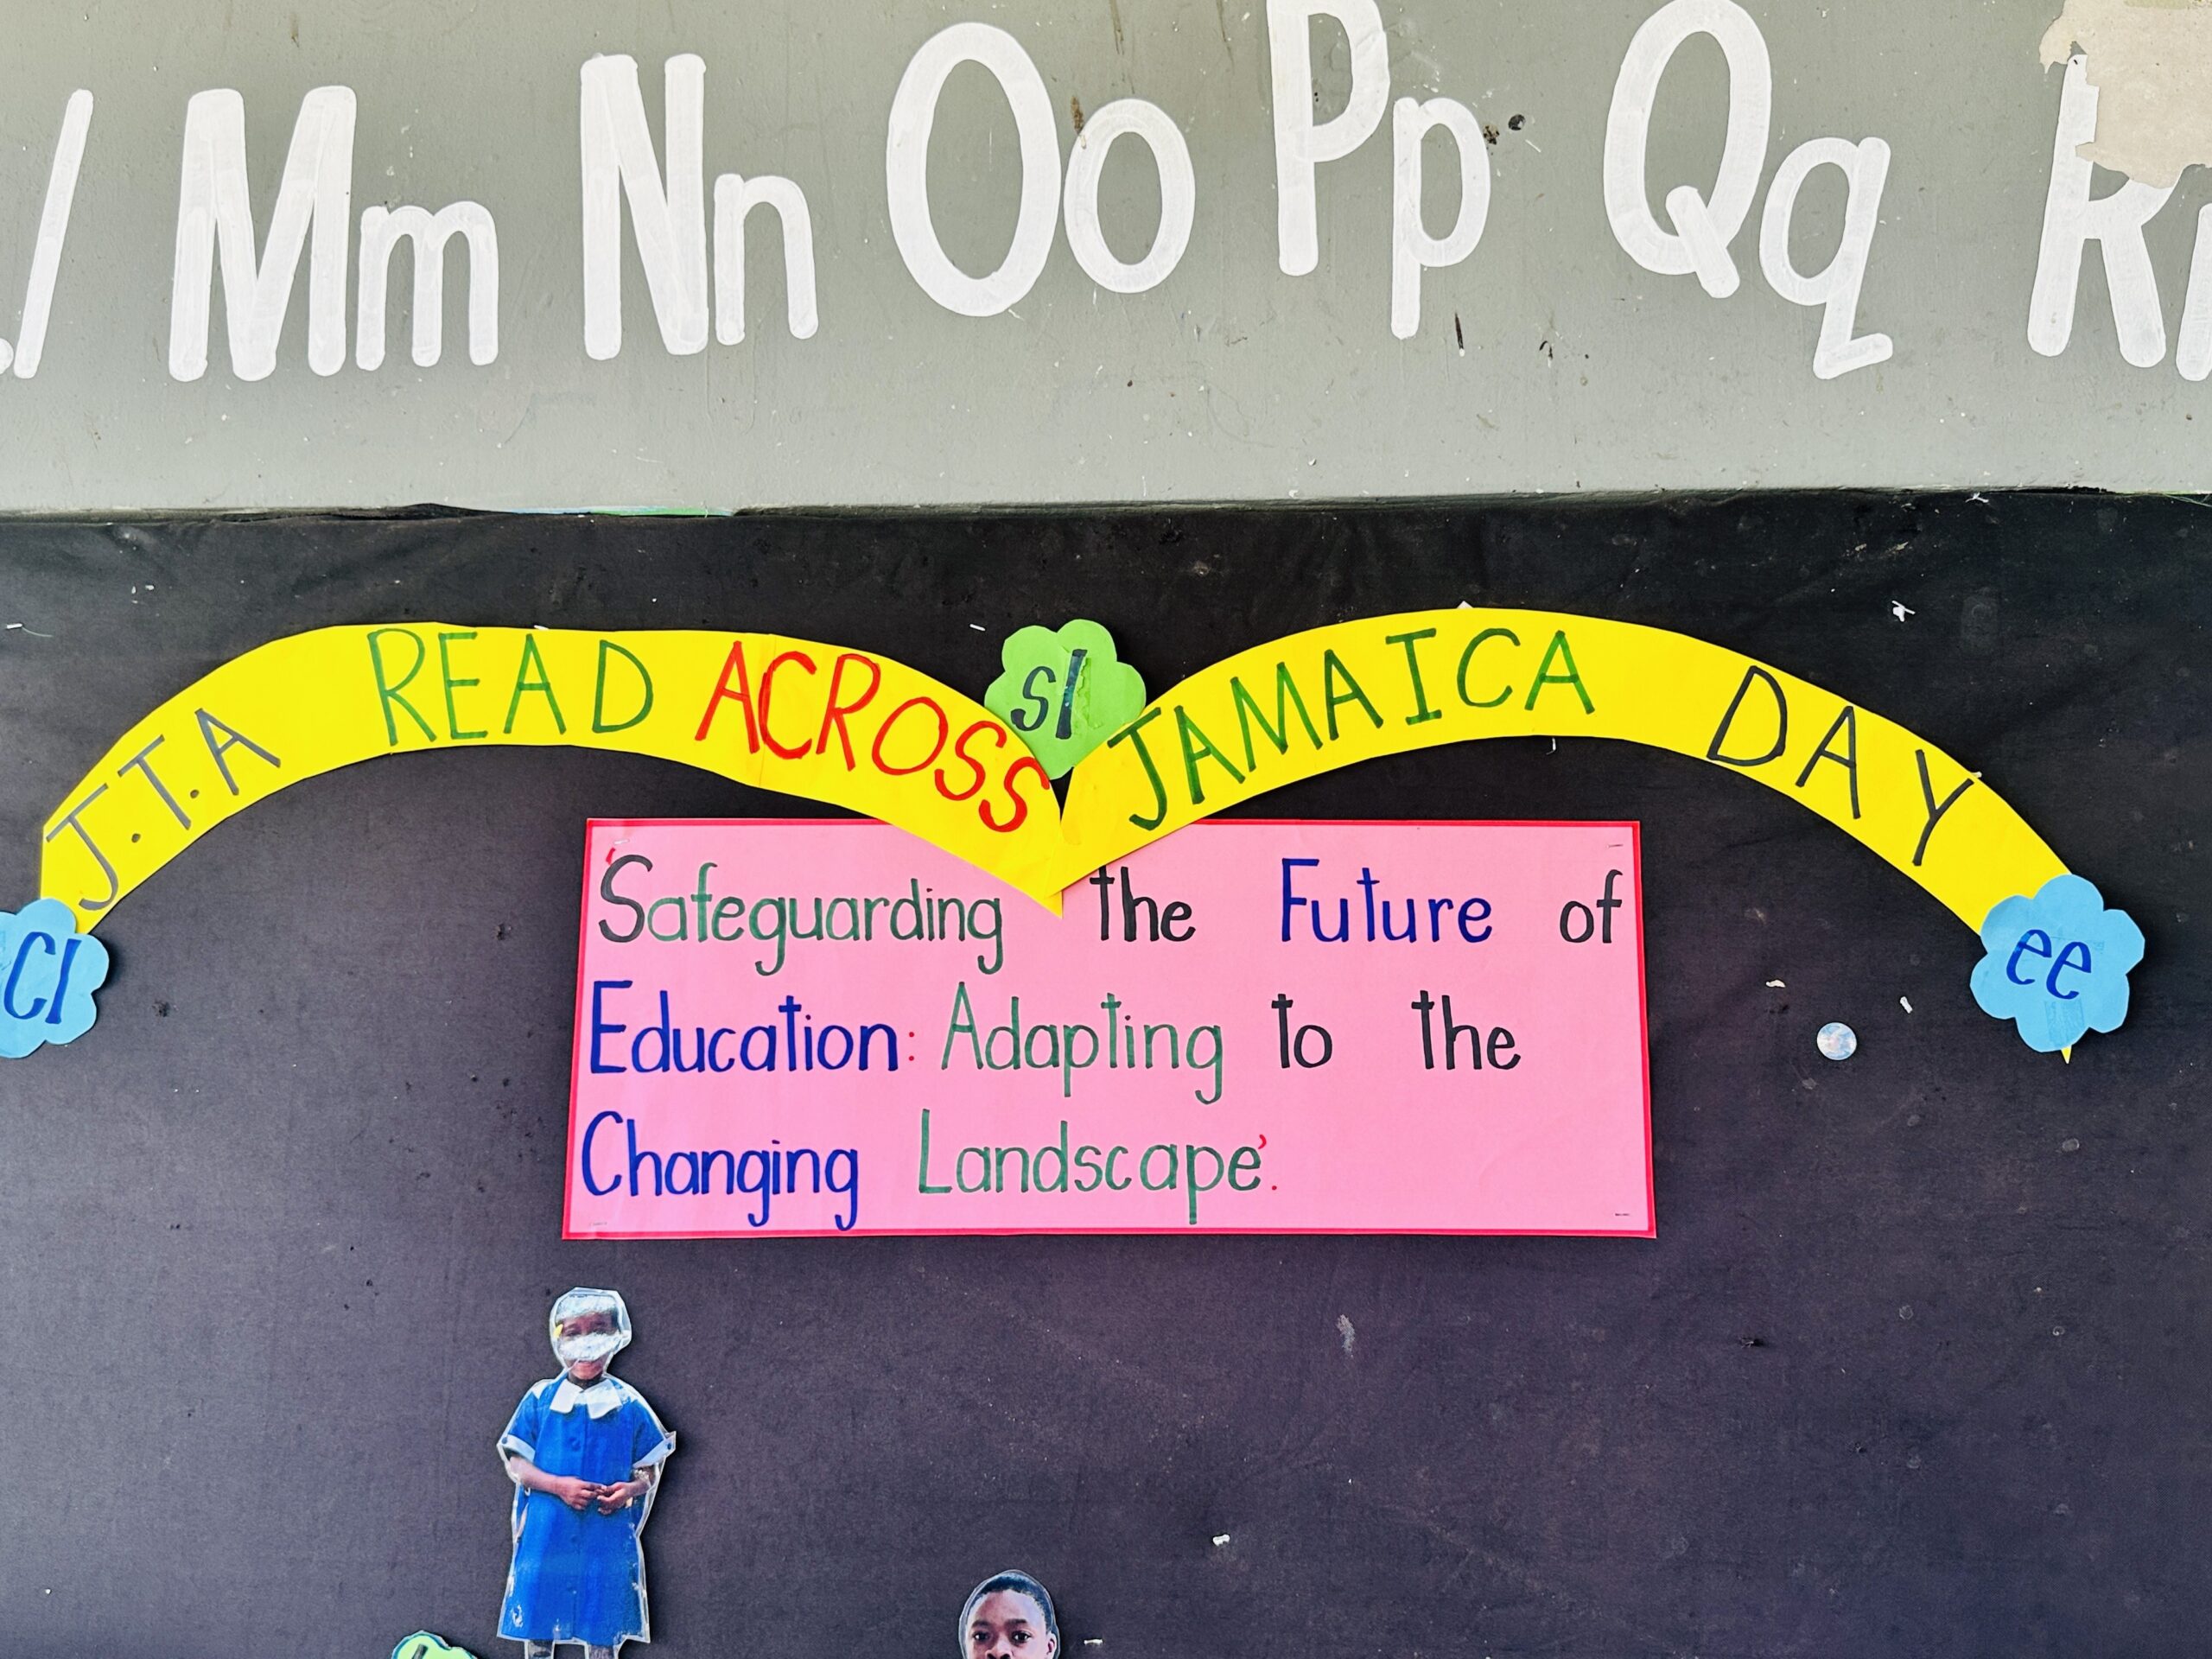 Mm Nn Oo Pp Qq R
J.T.A READ ACROSS JAMAICA DAY
sl
cl
ee
'Safeguarding the Future of
Education: Adapting to the
Changing Landscape'.